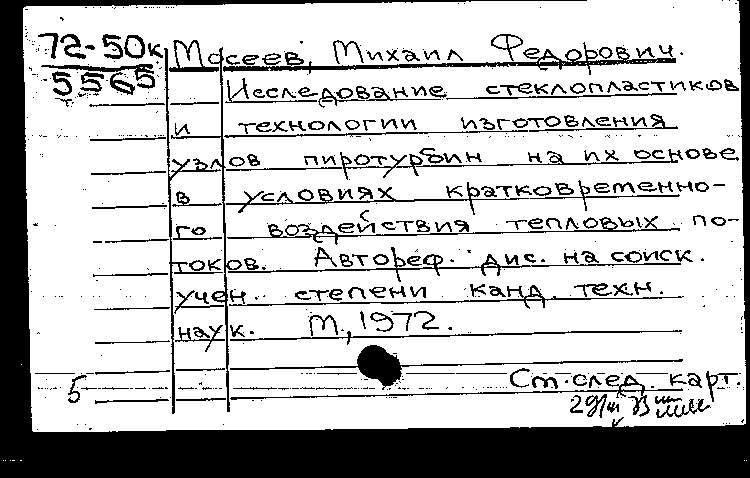 72-50к Мосеев, Михаил Федорович.
5565
Исследование стеклопластиков
и технологии изготовления
узлов пиротурбин на их основе
в условиях кратковременно-
го воздействия тепловых по-
токов. Автореф. дис. на соиск.
учен. степени канд. техн.
наук. М., 1972.
5 См. след. карт.